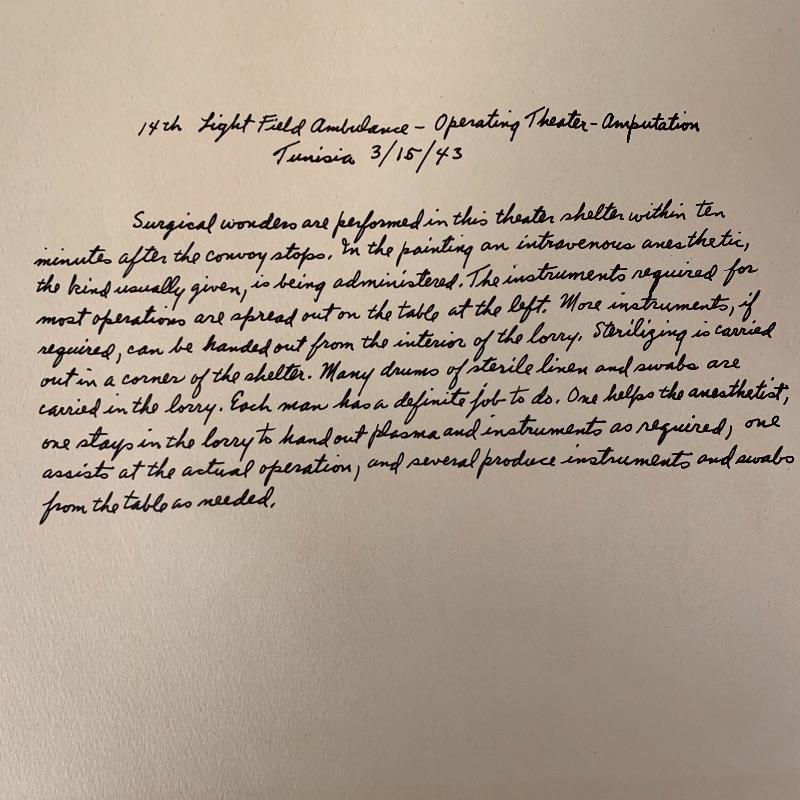 14th Light Field Ambulance - Operating Theater - Amputation
Tunisia 3/15/43
Surgical wonders are performed in this theater shelter within ten
minutes after the convoy stops. In the painting an intravenous anesthetic,
the kind usually given, is being administered. The instruments required for
most operations are spread out on the table at the left. More instruments, if
required, can be handed out from the interior of the lorry. Sterilizing is carried
out in a corner of the shelter. Many drums of sterile linen and swabs are
carried in the lorry. Each man has a definite job to do. One helps the anesthetist,
one stays in the lorry to hand out plasma and instruments as required, one
assists at the actual operation, and several produce instruments and swabs
from the table as needed.